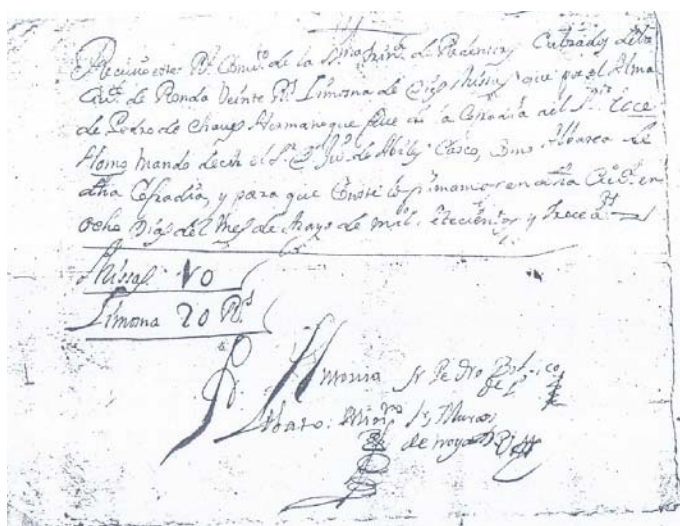 Reciuio este Rl. Combto. de la SSma. Trind. de Redentores Calzados desta
Ciud. de Ronda Veinte Rs. Limosna de Diez Missas que por el Alma
de Pedro de Chaues Hermano que fue de la Cofradia del Sto. Ecce
Homo mando decir el Sr. Dn. Juo. de Abiles Casco, como Albacea de
dha Cofradia, y para que Conste lo firmamos en dha Ciud. en
ocho Dias del Mes de Mayo de mil setecientos y trece as.
Missas 10
Limona 20 Rs.
Fr Pedro
Fr. Marcos
de